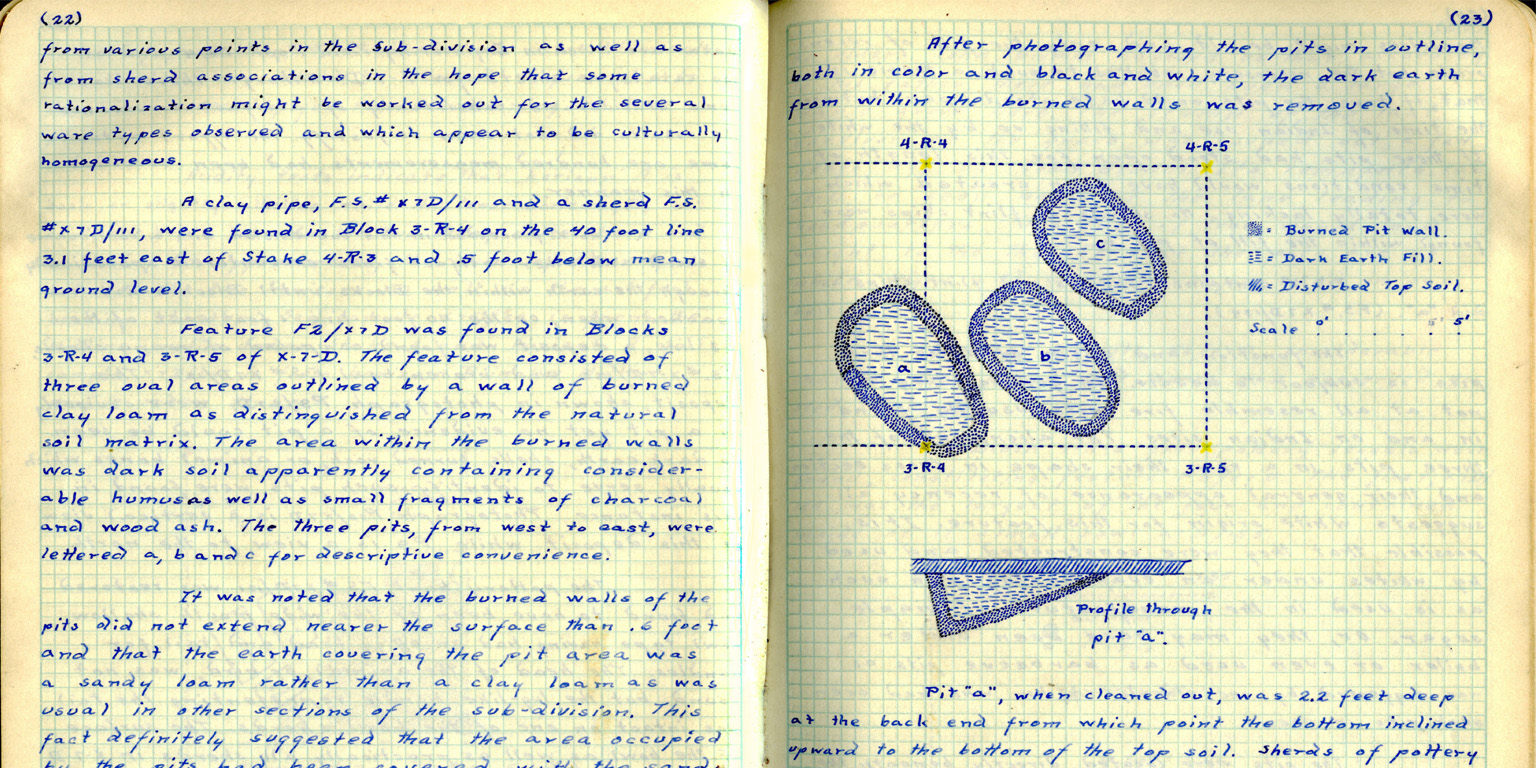 (22)
from various points in the sub-division as well as
from sherd associations in the hope that some
rationalization might be worked out for the several
ware types observed and which appear to be culturally
homogeneous.
A clay pipe, F.S.# x7D/111 and a sherd F.S.
#x7D/111, were found in Block 3-R-4 on the 40 foot line
3.1 feet east of Stake 4-R-3 and .5 foot below mean
ground level.
Feature F2/x7D was found in Blocks
3-R-4 and 3-R-5 of X-7-D. The feature consisted of
three oval areas outlined by a wall of burned
clay loam as distinguished from the natural
soil matrix. The area within the burned walls
was dark soil apparently containing consider-
able humus as well as small fragments of charcoal
and wood ash. The three pits, from west to east, were
lettered a, b and c for descriptive convenience.
It was noted that the burned walls of the
pits did not extend nearer the surface than .6 foot
and that the earth covering the pit area was
a sandy loam rather than a clay loam as was
usual in other sections of the sub-division. This
fact definitely suggested that the area occupied
by the pits had been covered with the sandy
(23)
After photographing the pits in outline,
both in color and black and white, the dark earth
from within the burned walls was removed.
4-R-4
4-R-5
c
a
b
3-R-4
3-R-5
= Burned Pit Wall.
= Dark Earth Fill.
= Disturbed Top Soil.
Scale 0' . . . . 5' 5'
Profile through
pit "a".
Pit "a", when cleaned out, was 2.2 feet deep
at the back end from which point the bottom inclined
upward to the bottom of the top soil. Sherds of pottery